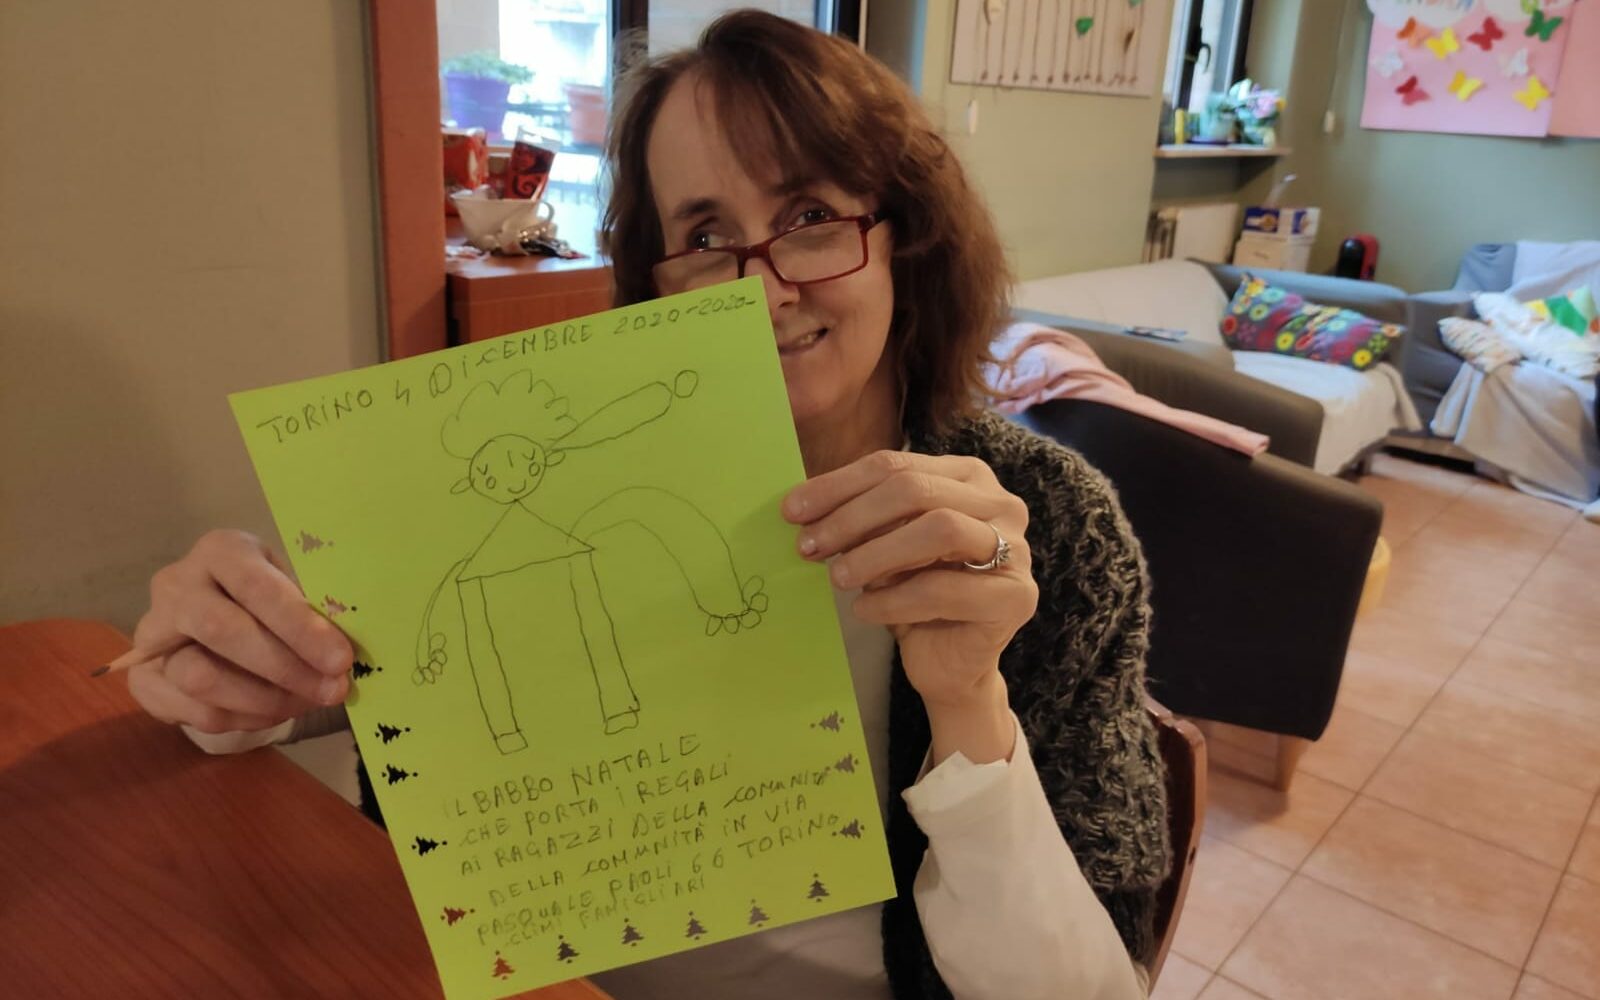 TORINO 4 DICEMBRE 2020-2020-
IL BABBO NATALE
CHE PORTA I REGALI
AI RAGAZZI DELLA COMUNITÀ
DELLA COMUNITÀ IN VIA
PASQUALE PAOLI 66 TORINO
CLIMI FAMIGLIARI